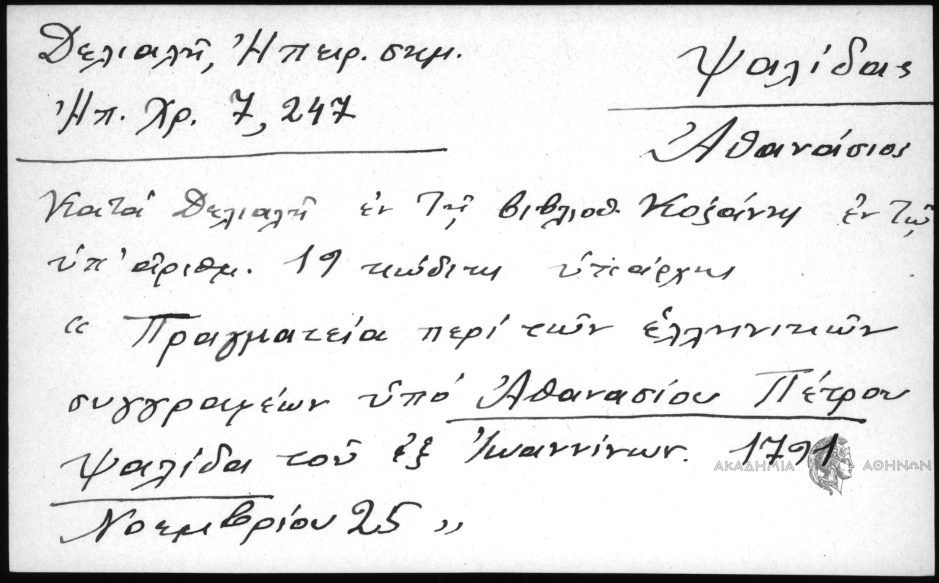 Δελιαλῆ, Ἠπειρ. σημ.
Ἠπ. Χρ. 7, 247
Ψαλίδας
Ἀθανάσιος
Κατά Δελιαλῆ ἐν τῇ βιβλιοθ. Κοζάνης ἐν τῷ
ὑπ' ἀριθμ. 19 κώδικι ὑπάρχει
“ Πραγματεία περί τῶν ἑλληνικῶν
συγγραφέων ὑπό Ἀθανασίου Πέτρου
Ψαλίδα τοῦ ἐξ Ἰωαννίνων. 1791
Νοεμβρίου 25 „
ΑΚΑΔΗΜΙΑ ΑΘΗΝΩΝ